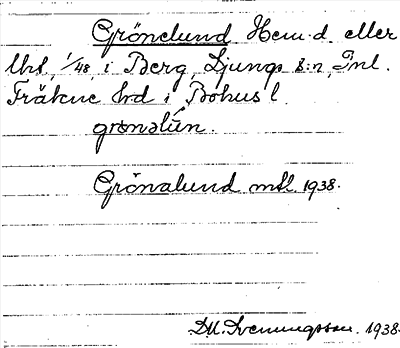 Grönelund Hem.d. eller
lht. 1/48, i Berg, Ljungs s:n, Inl.
Fräkne hrd i Bohusl.
grønəlún.
Grönalund mtl. 1938.
D.U. Svenungsson. 1938.